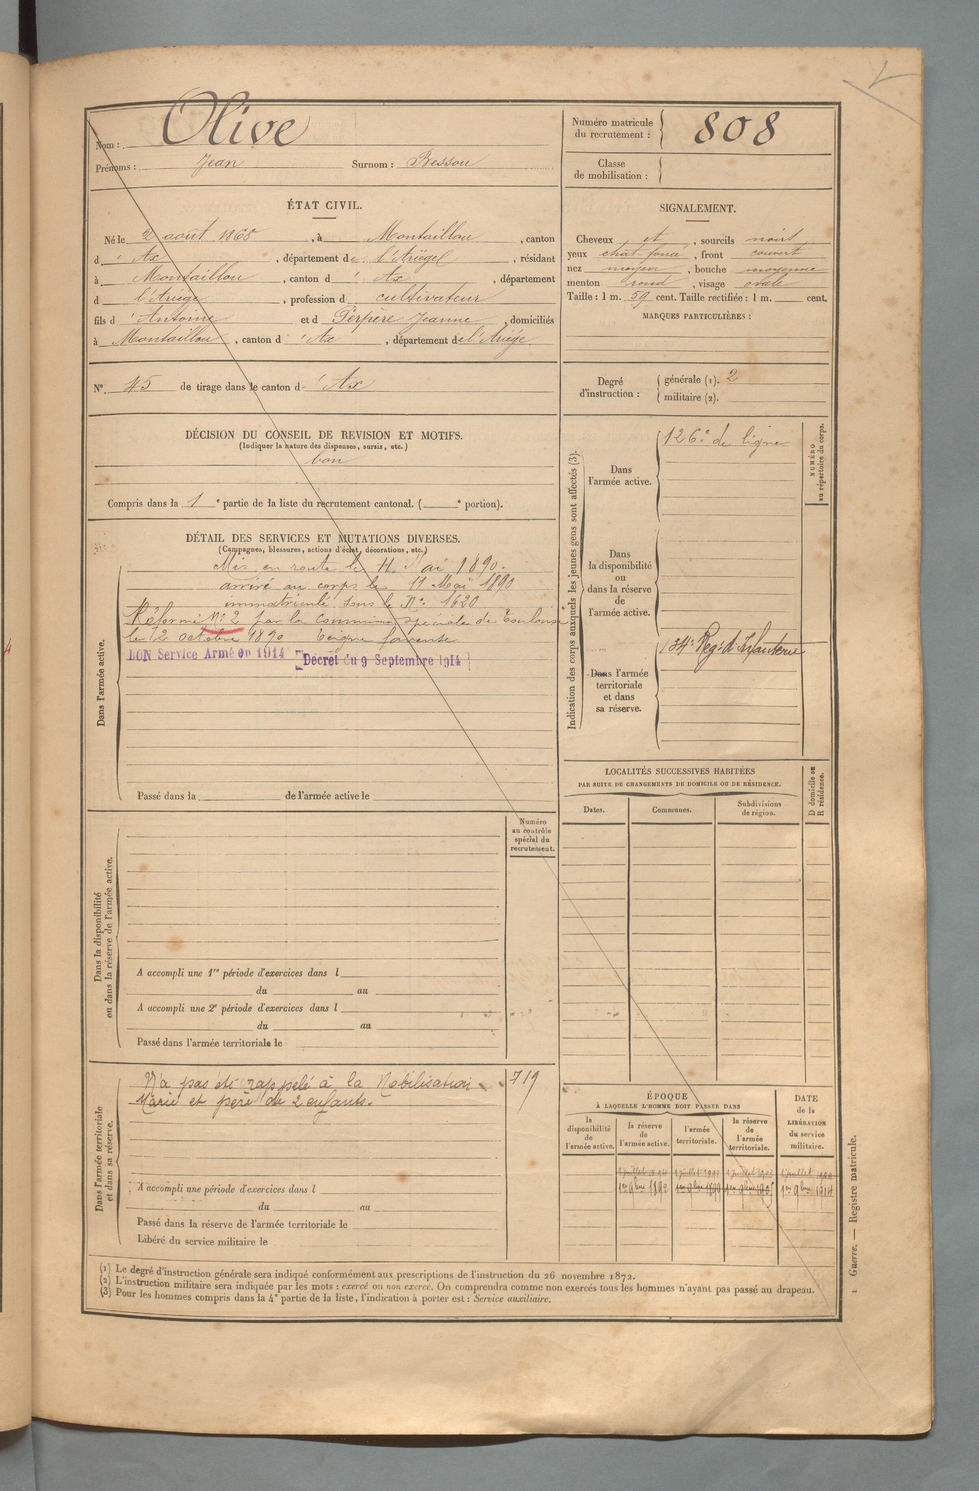 Nom : Olive
Prénoms : Jean Surnom : Pressou
Numéro matricule du recrutement : 808
Classe de mobilisation :
ÉTAT CIVIL.
Né le 2 août 1868, à Montaillou, canton
d' Ax, département de l'Ariège, résidant
à Montaillou, canton d' Ax, département
d l'Ariège, profession d cultivateur
fils d' Antoine et d Perpère Jeanne, domiciliés
à Montaillou, canton d' Ax, département de l'Ariège.
SIGNALEMENT.
Cheveux et, sourcils noirs
yeux chat. foncé, front couvert
nez moyen, bouche moyenne
menton rond, visage ovale
Taille : 1 m. 59 cent. Taille rectifiée : 1 m. cent.
MARQUES PARTICULIÈRES :
N° 45 de tirage dans le canton d' Ax
Degré d'instruction : générale (1). 2
militaire (2).
DÉCISION DU CONSEIL DE REVISION ET MOTIFS.
(Indiquer la nature des dispenses, sursis, etc.)
bon
Compris dans la 1e partie de la liste du recrutement cantonal. ( e portion).
DÉTAIL DES SERVICES ET MUTATIONS DIVERSES.
(Campagnes, blessures, actions d'éclat, décorations, etc.)
Dans l'armée active.
Mis en route le 11 Mai 1890.
arrivé au corps le 11 Mai 1890
immatriculé sous le N° 1620
Réformé N° 2 par la Commission spéciale de Toulouse
le 12 octobre 1890 teigne faveuse
BON Service Armé en 1914 [Décret du 9 Septembre 1914]
Passé dans la de l'armée active le
Indication des corps auxquels les jeunes gens sont affectés (3).
Dans l'armée active.
126e de ligne
Dans la disponibilité ou dans la réserve de l'armée active.
Dans l'armée territoriale et dans sa réserve.
134e Regt d'Infanterie
NUMÉRO au répertoire du corps.
LOCALITÉS SUCCESSIVES HABITÉES
PAR SUITE DE CHANGEMENTS DE DOMICILE OU DE RÉSIDENCE.
Dates. Communes. Subdivisions de région.
D domicile ou R résidence.
Numéro au contrôle spécial du recrutement.
Dans la disponibilité ou dans la réserve de l'armée active.
A accompli une 1re période d'exercices dans l
du au
A accompli une 2e période d'exercices dans l
du au
Passé dans l'armée territoriale le
Dans l'armée territoriale et dans sa réserve.
N'a pas été rappelé à la Mobilisation 719
Marié et père de 2 enfants.
A accompli une période d'exercices dans l
du au
Passé dans la réserve de l'armée territoriale le
Libéré du service militaire le
ÉPOQUE
À LAQUELLE L'HOMME DOIT PASSER DANS
la disponibilité de l'armée active.
la réserve de l'armée active.
l'armée territoriale.
la réserve de l'armée territoriale.
DATE de la LIBÉRATION du service militaire.
1er 9bre 1892 1er 9bre 1914
(1) Le degré d'instruction générale sera indiqué conformément aux prescriptions de l'instruction du 26 novembre 1872.
(2) L'instruction militaire sera indiquée par les mots : exercé ou non exercé. On comprendra comme non exercés tous les hommes n'ayant pas passé au drapeau.
(3) Pour les hommes compris dans la 4e partie de la liste, l'indication à porter est : Service auxiliaire.
1 Guerre. — Registre matricule.